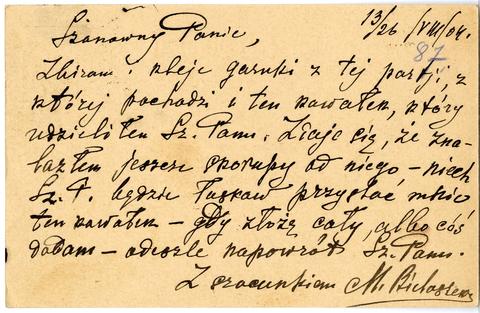 13/26 /VIII/04.
87
Szanowny Panie,
Zbieram i kleję garnki z tej partji, z
której pochodzi i ten kawałek, który
udzieliłem Sz. Panu. Zdaje się, że zna-
lazłem jeszcze skorupy od niego – niech
Sz. P. będzie łaskaw przysłać mnie
ten kawałek – gdy złożę cały, albo coś
dodam – odeszlę napowrót Sz. Panu.
Z szacunkiem M. Białoszew